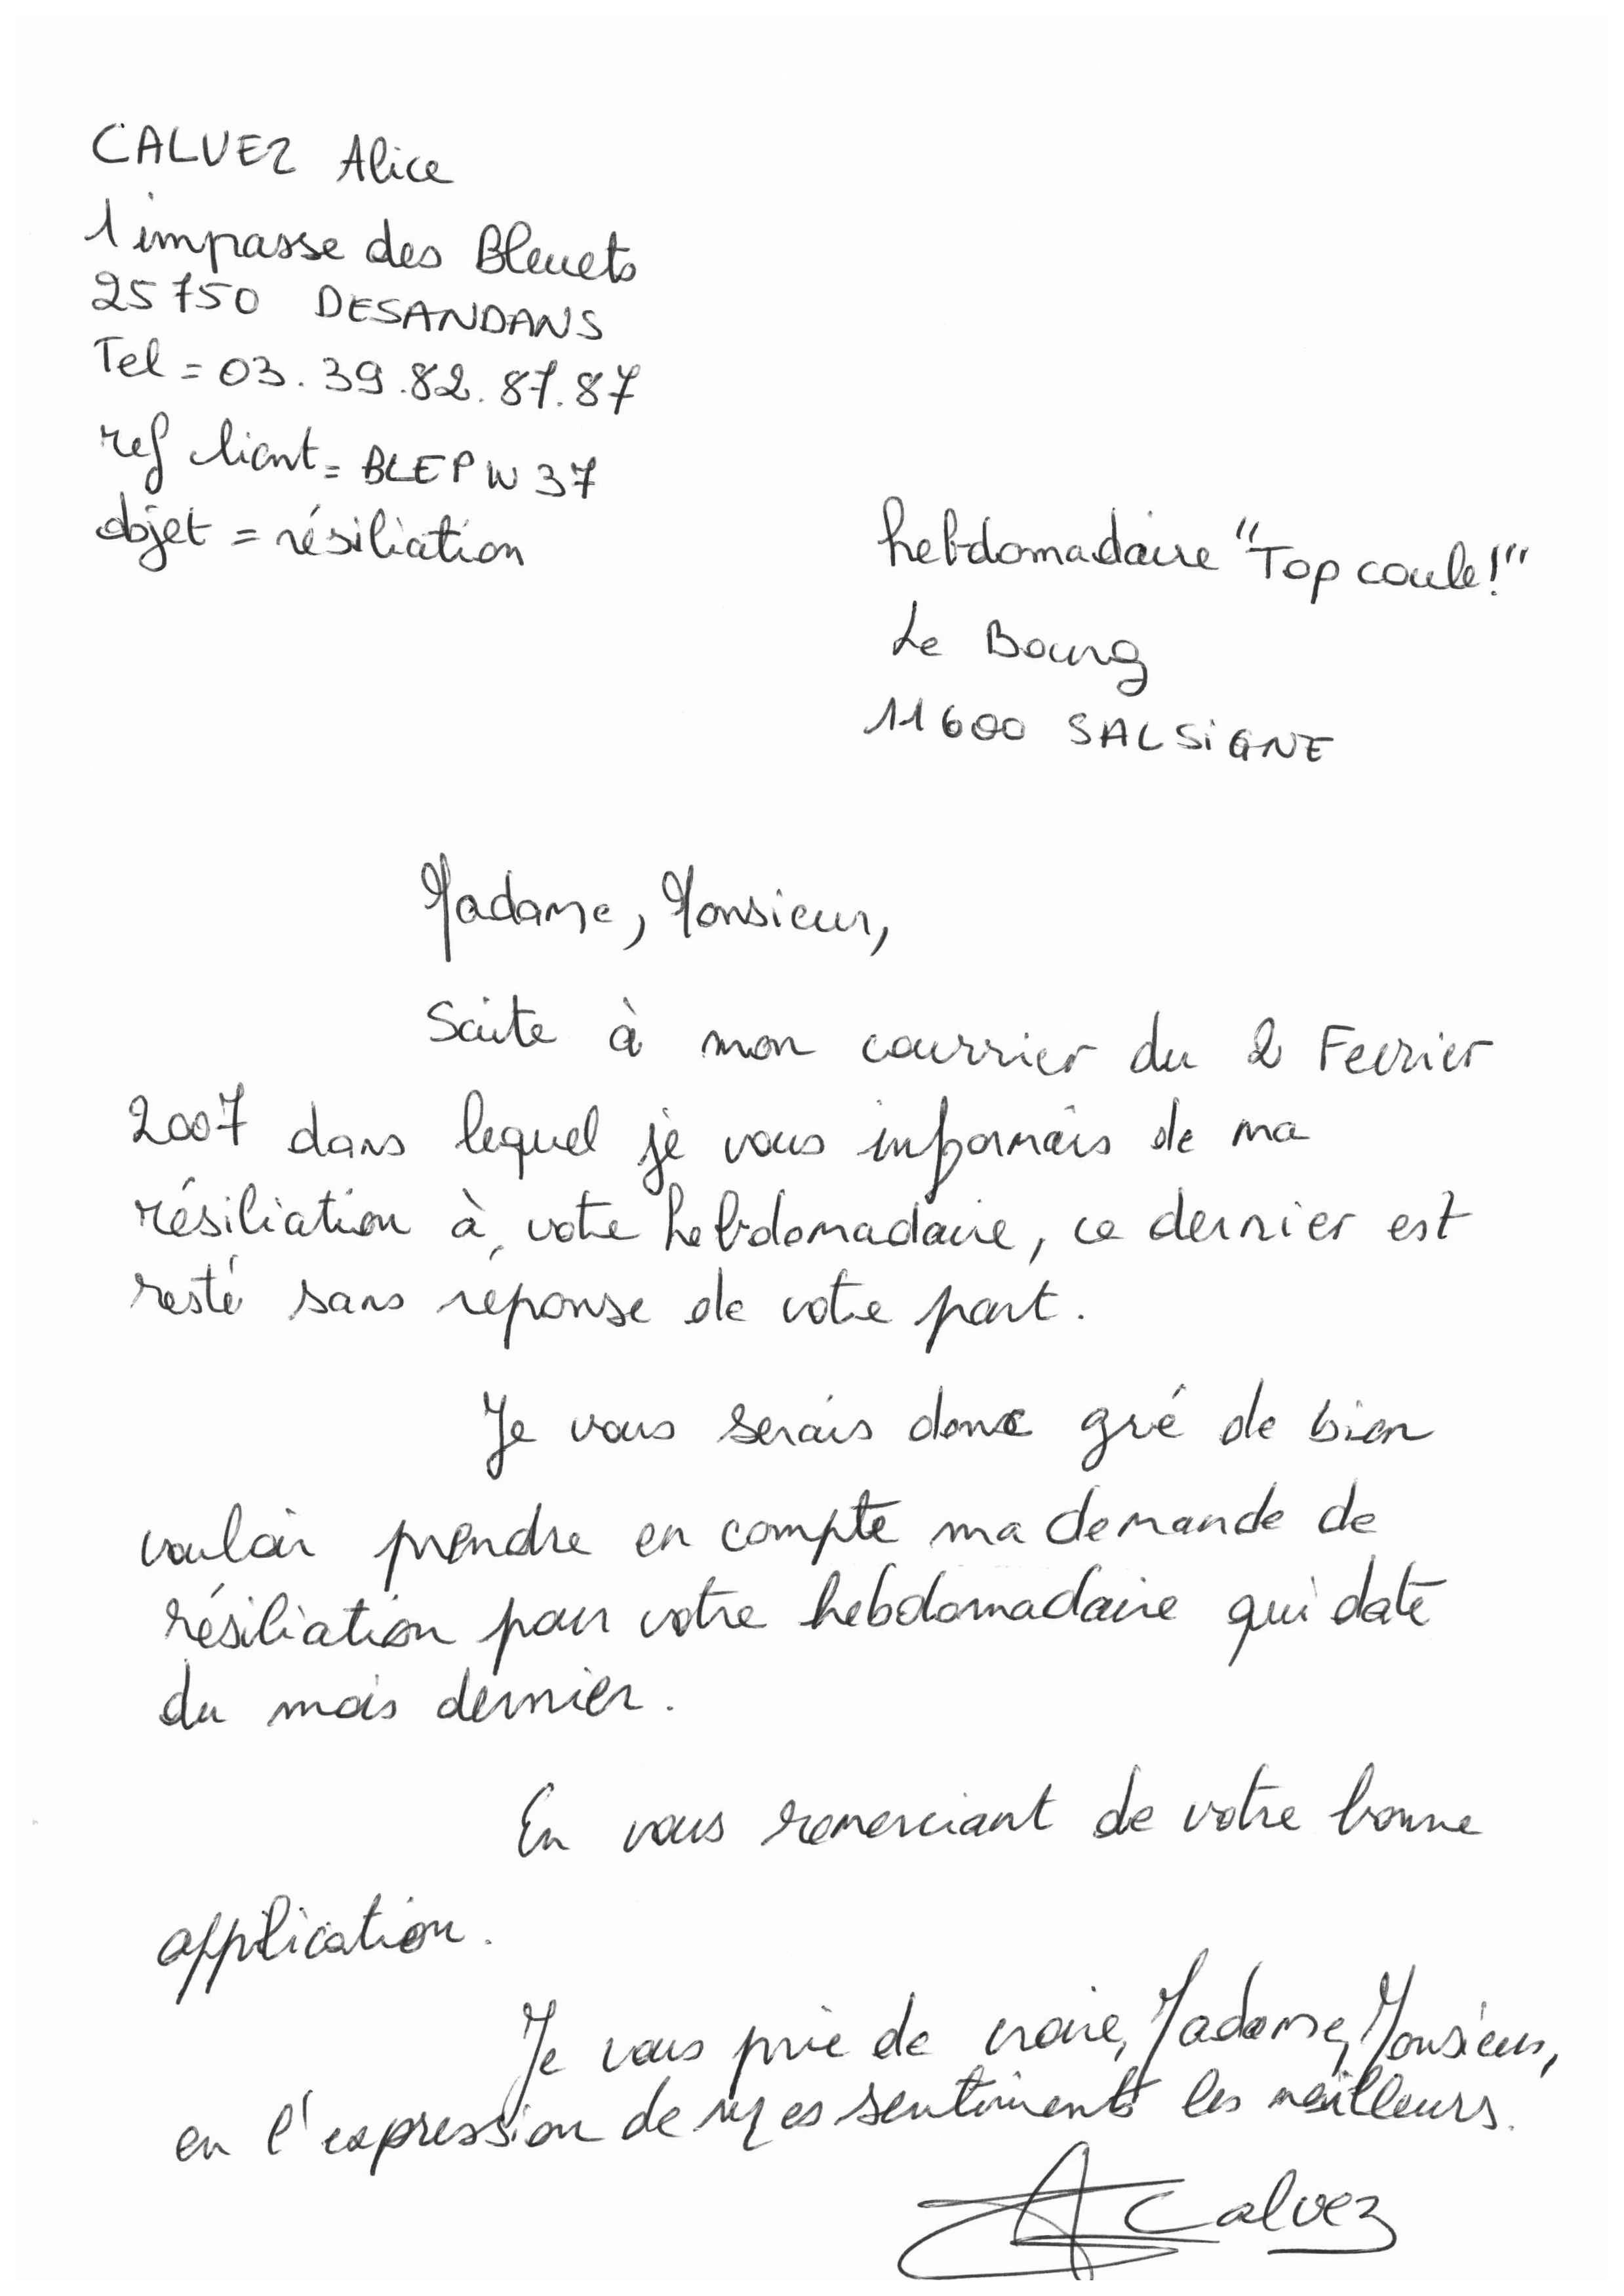 CALVEZ Alice
1 impasse des Bleuets
25750 DESANDANS
Tel = 03.39.82.87.87
ref client = BLEPW37
objet = résiliation
hebdomadaire "Top coule!"
Le Bourg
11600 SALSIGNE
Madame, Monsieur,
Suite à mon courrier du 2 Fevrier
2007 dans lequel je vous informais de ma
résiliation à votre hebdomadaire, ce dernier est
resté sans réponse de votre part.
Je vous serais donc gré de bien
vouloir prendre en compte ma demande de
résiliation pour votre hebdomadaire qui date
du mois dernier.
En vous remerciant de votre bonne
application.
Je vous prie de croire, Madame, Monsieur,
en l'expression de mes sentiments les meilleurs.
A Calvez